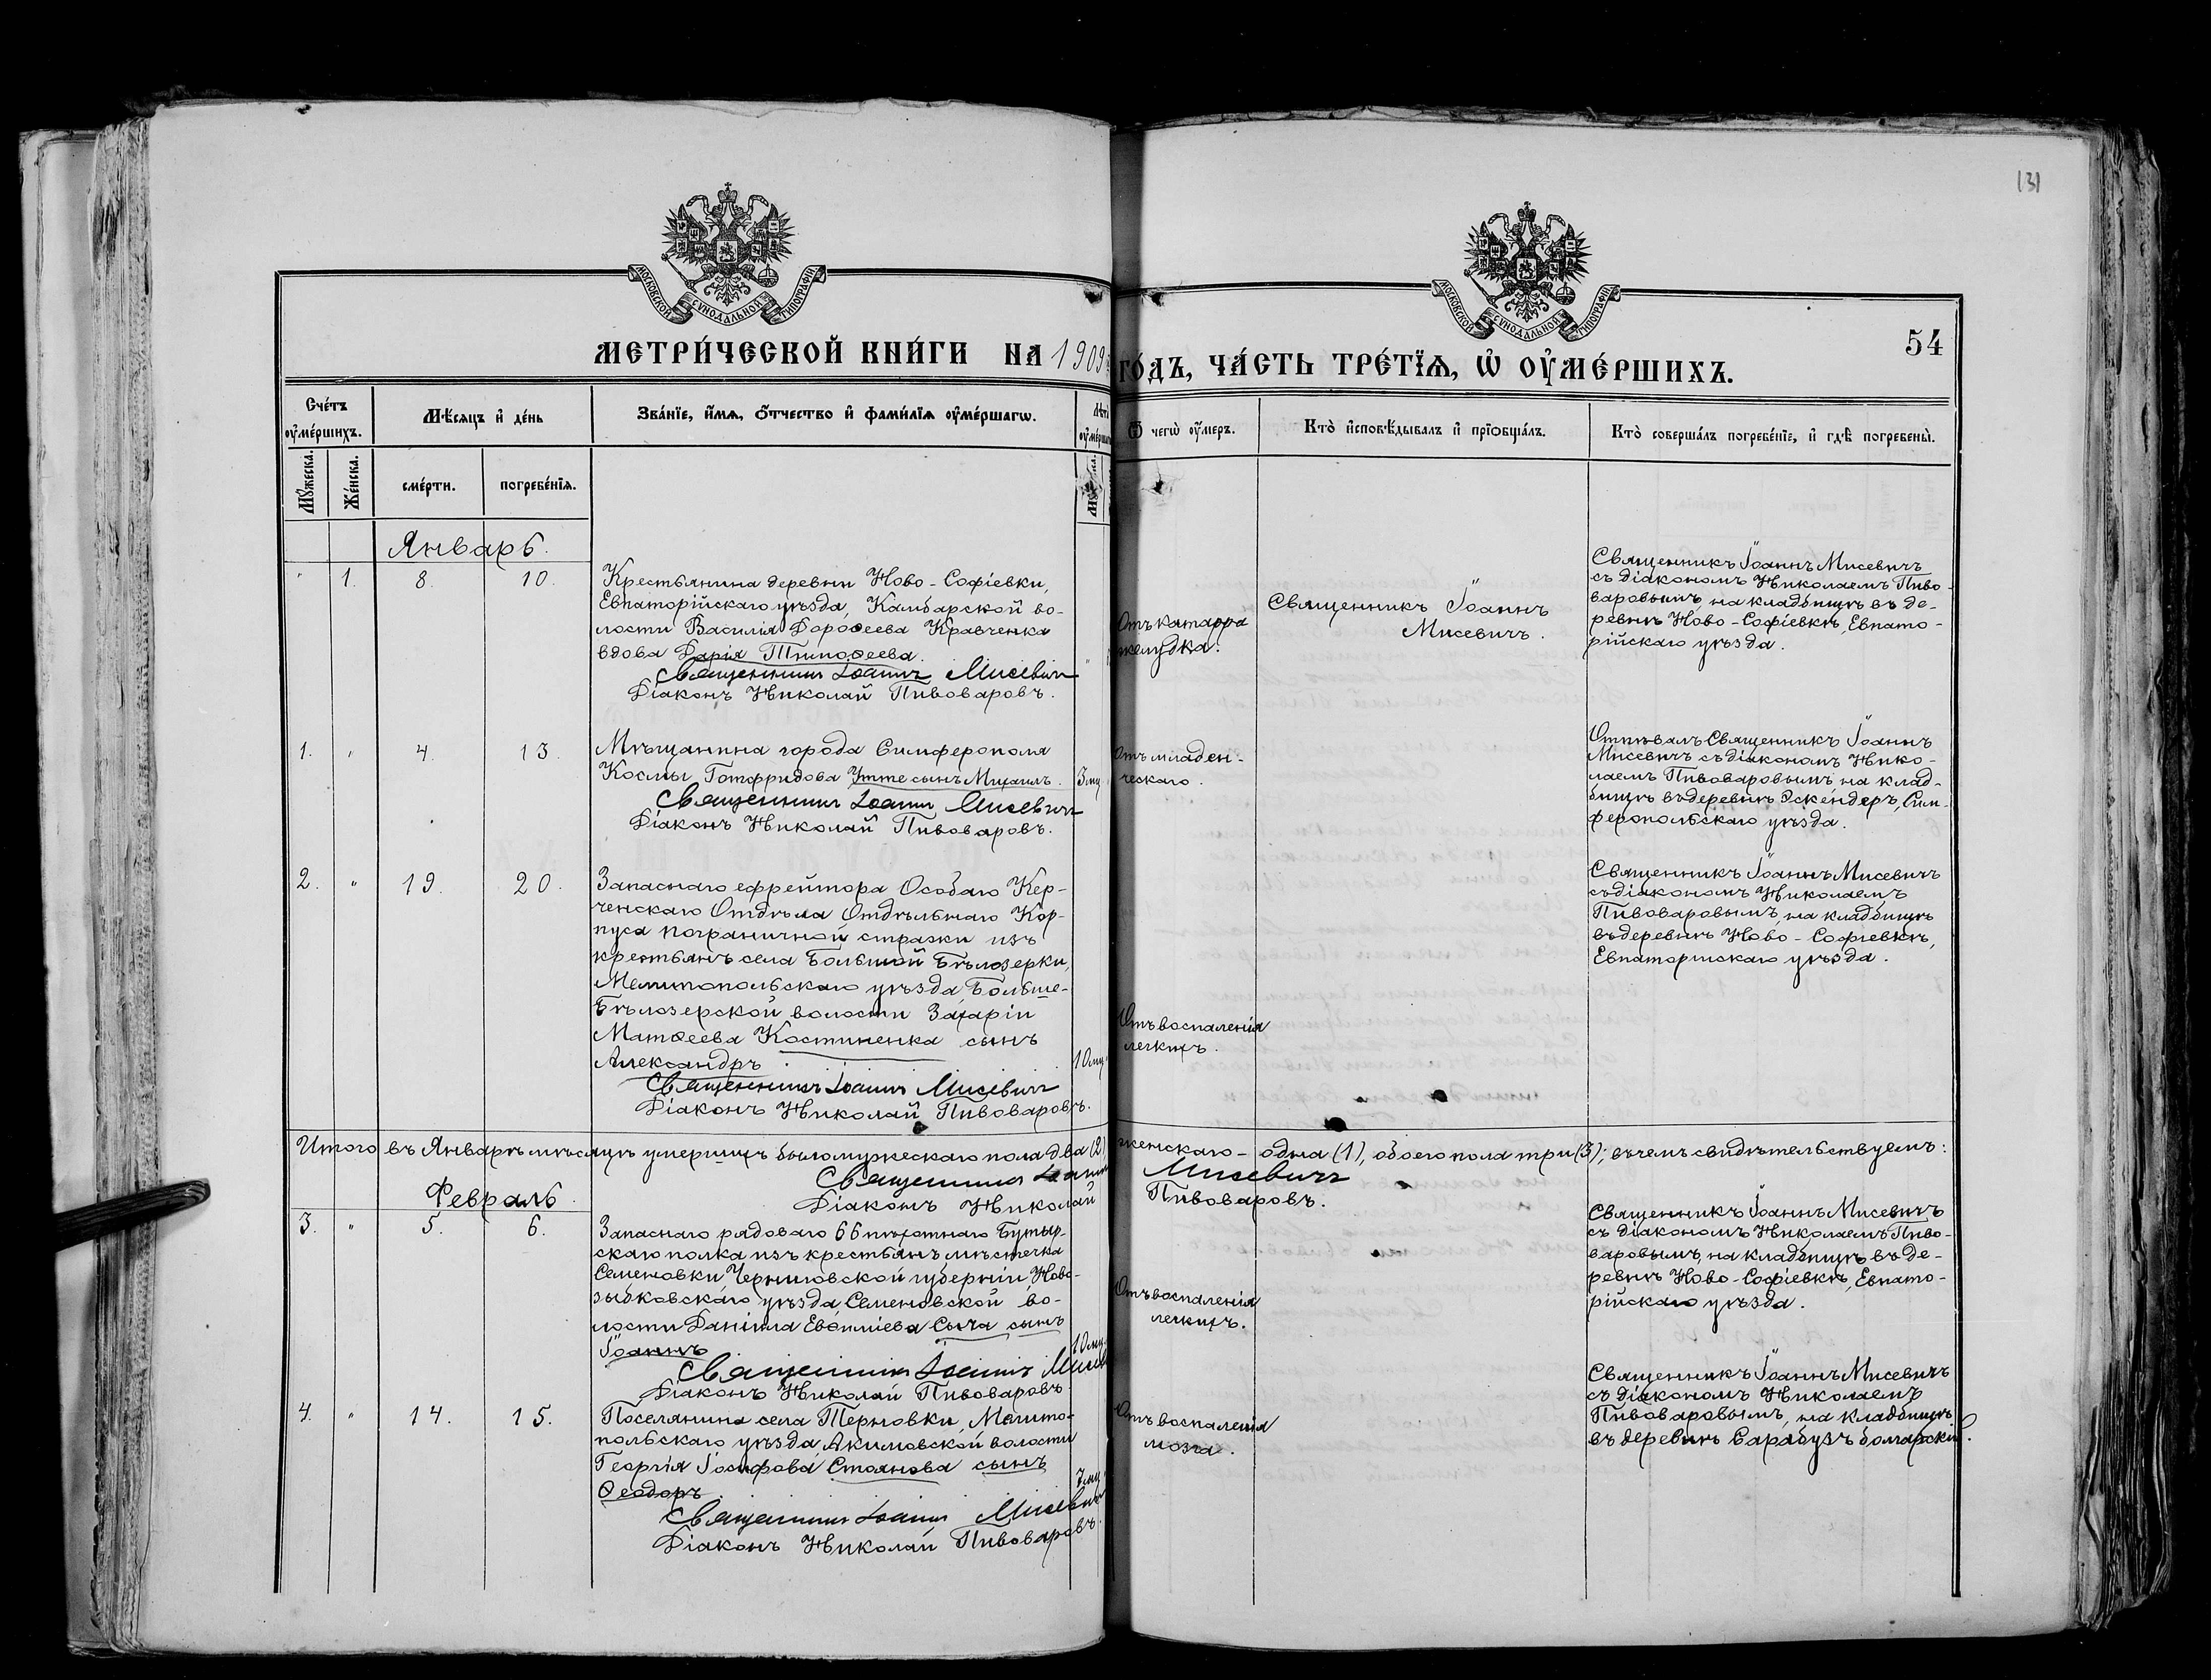 131
МОСКОВСКОЙ СУНОДАЛЬНОЙ ТИПОГРАФІИ
МОСКОВСКОЙ СУНОДАЛЬНОЙ ТИПОГРАФІИ
54
МЕТРИ́ЧЕСКОЙ КНИ́ГИ НА 1909
ГО́ДЪ, ЧА́СТЬ ТРЕ́ТЇѦ, Ѡ҆ ОУ҆МЕ́РШИХЪ.
Сче́тъ оу҆ме́ршихъ.
Мѣ́сяцъ и҆ де́нь
Зва́нїе, и҆́мѧ, ѻ҆́тчество и҆ фами́лїѧ оу҆ме́ршагѡ.
Ѿ чегѡ̀ оу҆́меръ.
Кто̀ и҆сповѣ́дывалъ и҆ прїѻбща́лъ.
Кто̀ соверша́лъ погребе́нїе, и҆ гдѣ̀ погребены̀.
Мꙋ́жеска.
Же́нска.
сме́рти.
погребе́нїѧ.
Январь.
" 1. 8. 10.
Крестьянина деревни Ново-Софіевки,
Евпаторійскаго уѣзда, Камбарской во-
лости Василія Дороѳеева Кравченка
вдова Дарія Тимоѳеева.
Священникъ Іоаннъ Мисевичъ
Діаконъ Николай Пивоваровъ.
Отъ катарра
желудка.
Священникъ Іоаннъ
Мисевичъ.
Священникъ Іоаннъ Мисевичъ
съ діакономъ Николаемъ Пиво-
варовымъ, на кладбищѣ въ де-
ревнѣ Ново-Софіевкѣ, Евпато-
рійскаго уѣзда.
1. " 4. 13.
Мѣщанина города Симферополя
Космы Готфридова Утте сынъ Михаилъ.
3 мц
Священникъ Іоаннъ Мисевичъ
Діаконъ Николай Пивоваровъ.
Отъ младен-
ческаго.
Отпѣвалъ Священникъ Іоаннъ
Мисевичъ съ діакономъ Нико-
лаемъ Пивоваровымъ, на клад-
бищѣ въ деревнѣ Эскендеръ, Сим-
феропольскаго уѣзда.
2. " 19. 20.
Запаснаго ефрейтора Особаго Кер-
ченскаго Отдѣла Отдѣльнаго Кор-
пуса пограничной стражи изъ
крестьянъ села Большой Бѣлозерки,
Мелитопольскаго уѣзда, Больше-
Бѣлозерской волости Захаріи
Матѳеева Костиненка сынъ
Александръ
10 мц
Священникъ Іоаннъ Мисевичъ
Діаконъ Николай Пивоваровъ.
Отъ воспаленія
легкихъ.
Священникъ Іоаннъ Мисевичъ
съ діакономъ Николаемъ
Пивоваровымъ, на кладбищѣ
въ деревнѣ Ново-Софіевкѣ,
Евпаторійскаго уѣзда.
Итого въ Январѣ мѣсяцѣ умершихъ было мужескаго пола два (2)
женскаго - одна (1), обоего пола три (3); въ чемъ свидѣтельствуемъ:
Священникъ Іоаннъ Мисевичъ
Діаконъ Николай Пивоваровъ.
Февраль.
3. " 5. 6.
Запаснаго рядоваго 66 пѣхотнаго Бутыр-
скаго полка изъ крестьянъ мѣстечка
Семеновки Черниговской губерніи Ново-
зыбковскаго уѣзда, Семеновской во-
лости Даніила Евѳиміева Сыча сынъ
Іоаннъ
10 мц
Священникъ Іоаннъ Мисев
Діаконъ Николай Пивоваровъ
Отъ воспаленія
легкихъ.
Священникъ Іоаннъ Мисевичъ
съ діакономъ Николаемъ Пиво-
варовымъ, на кладбищѣ въ де-
ревнѣ Ново-Софіевкѣ, Евпато-
рійскаго уѣзда.
4. " 14. 15.
Поселянина села Терновки, Мелито-
польскаго уѣзда, Акимовской волости
Георгія Іосифова Стоянова сынъ
Ѳеодоръ
7 мц
Священникъ Іоаннъ Мисевичъ
Діаконъ Николай Пивоваровъ.
Отъ воспаленія
мозга.
Священникъ Іоаннъ Мисевичъ
съ діакономъ Николаемъ
Пивоваровымъ, на кладбищѣ
въ деревнѣ Сарабузъ болгарскій.